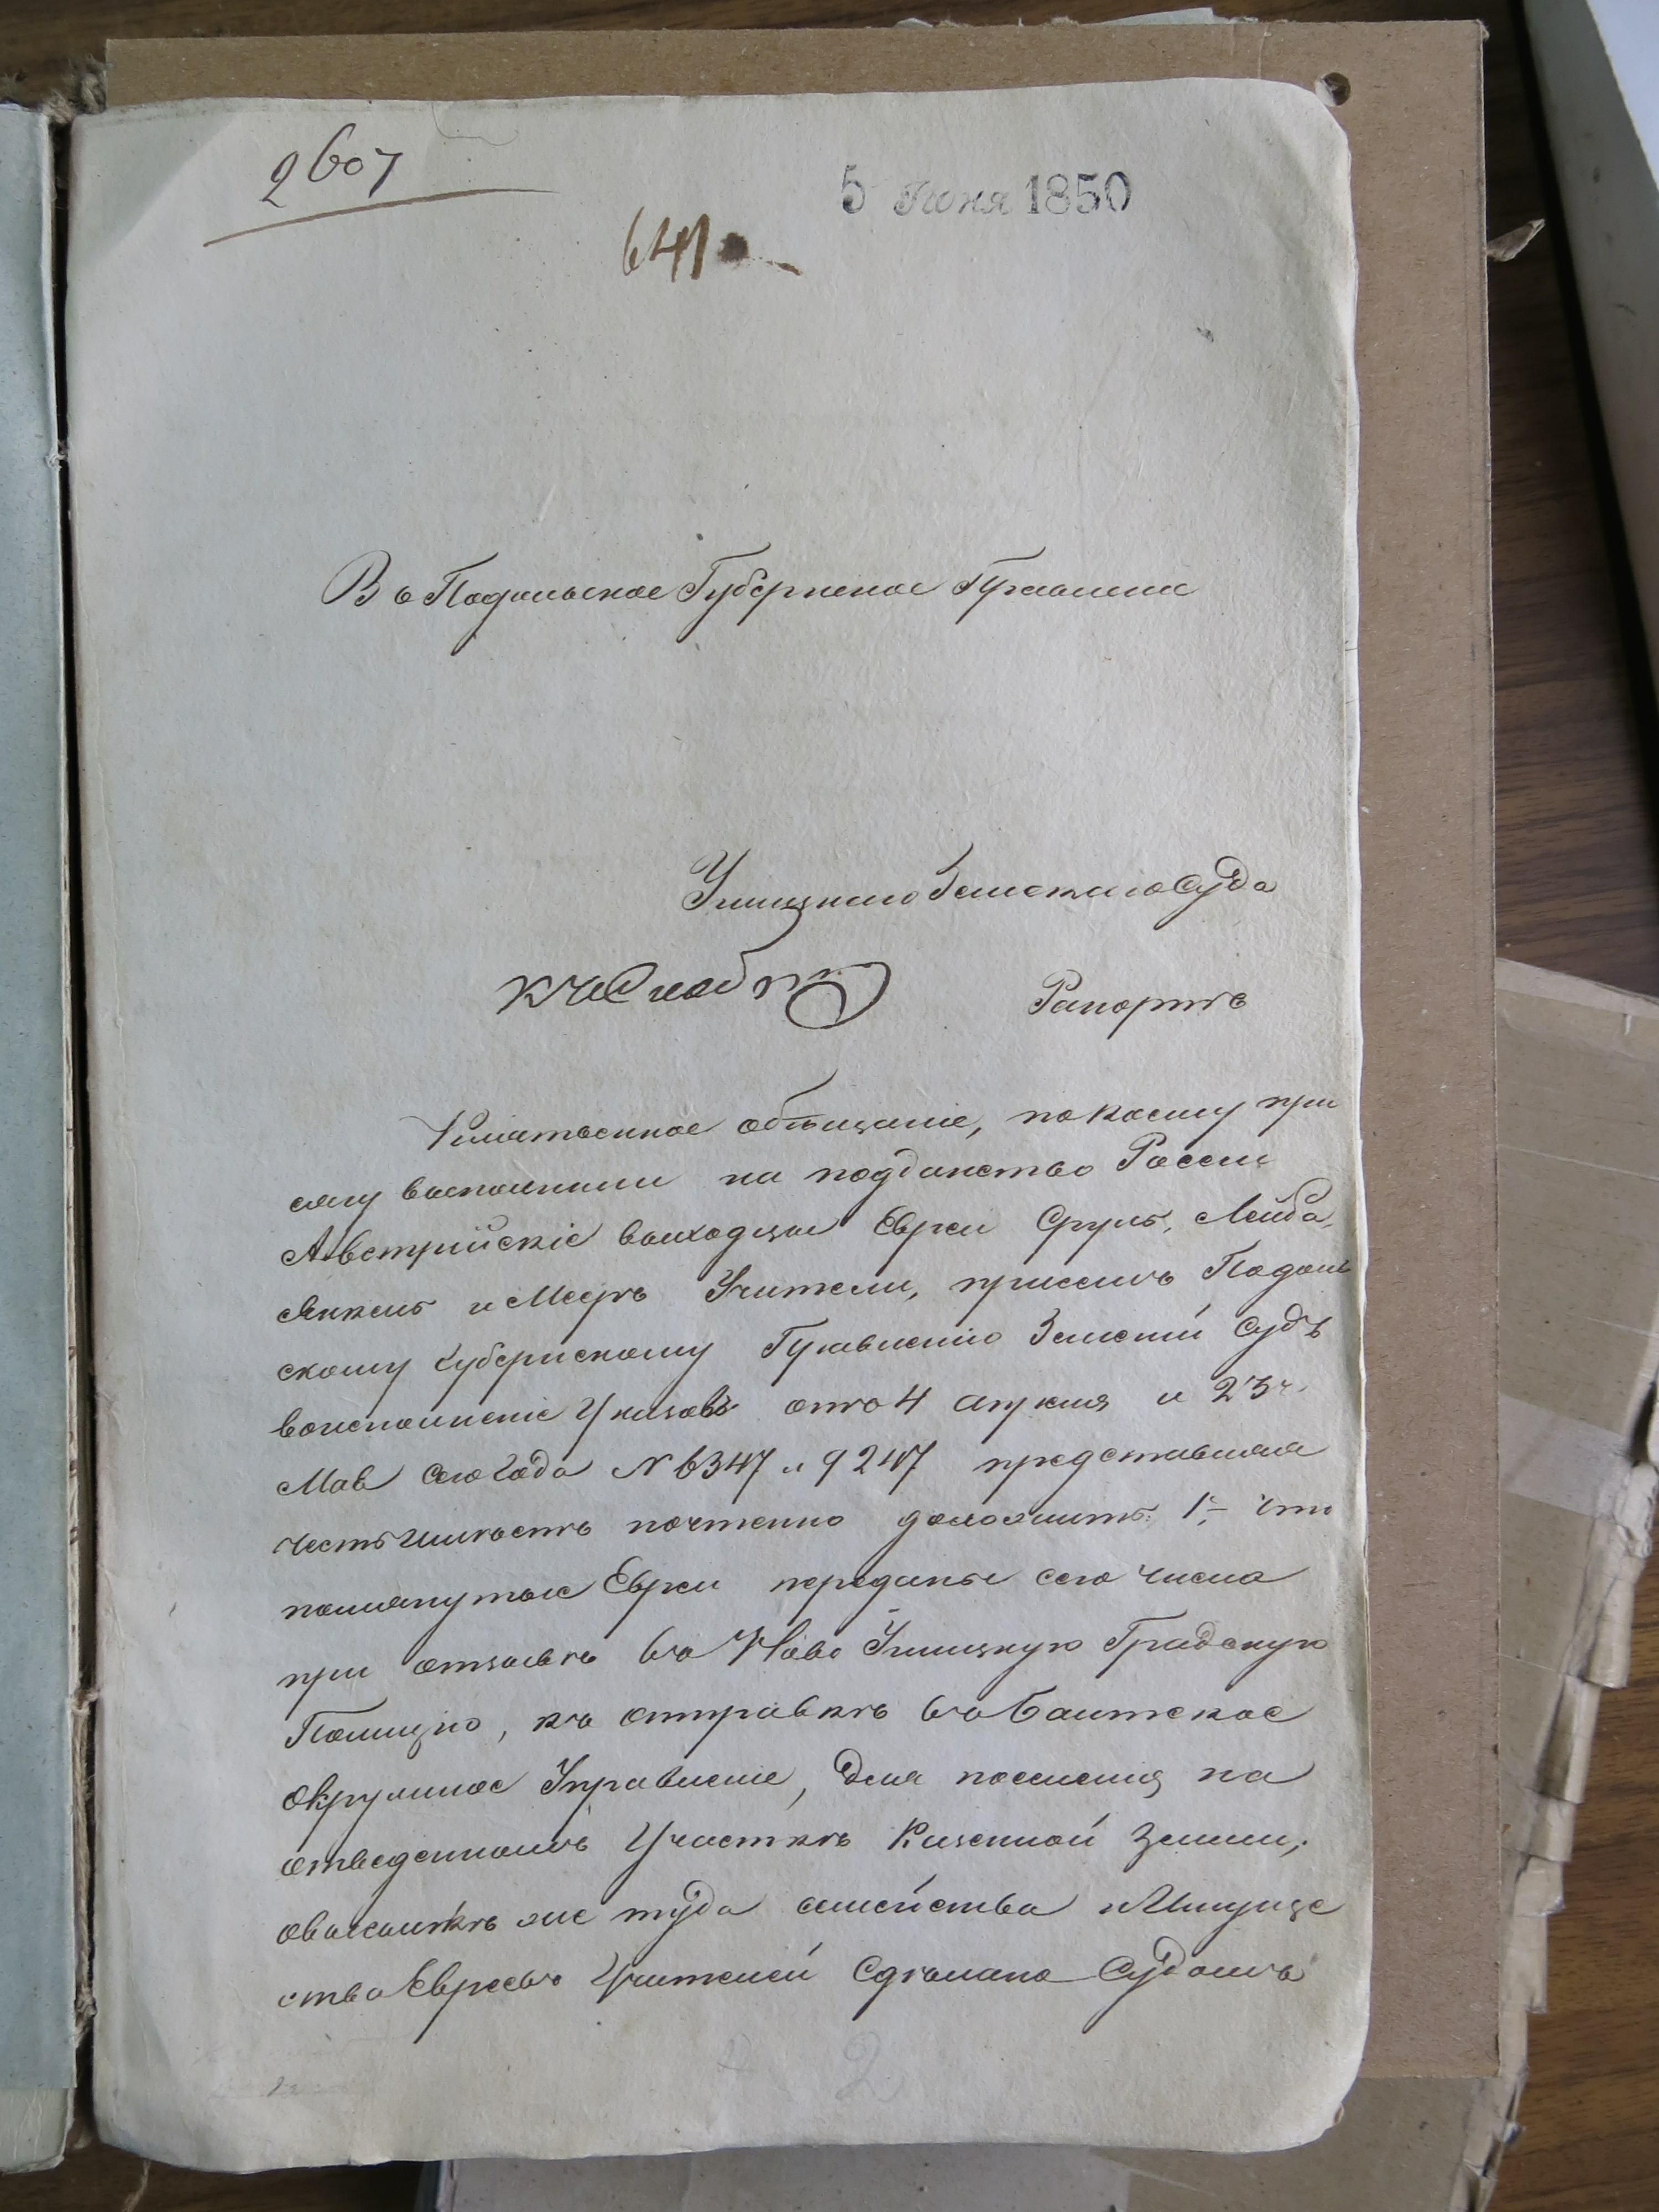 2607
5 Июня 1850
641
Въ Подольское Губернское Правленіе
Ушицкаго Земскаго Суда
Рапортъ
Клятвенное обѣщаніе, по коему при
сягу выполнили на подданство Россіи
Австрійскіе выходцы Евреи Сруль, Лейба,
Янкель и Мееръ Учители, присемъ Подоль
скому Губернскому Правленію Земскій Судъ
воисполненіе Указовъ отъ 4 апреля и 23
Мая сего года № 6347 и 9247 представляя
честь имѣетъ почтенно доложить: 1, что
помянутые Евреи переданы сего числа
при отзывѣ въ Ново Ушицкую Градскую
Полицію, къ отправкѣ въ Балтское
Окружное Управленіе, для поселенія на
отведенномъ Участкѣ Казенной земли;
овысылкѣ же туда семейства и Имуще
ства Евреевъ Учителей сдѣлано Судомъ
2